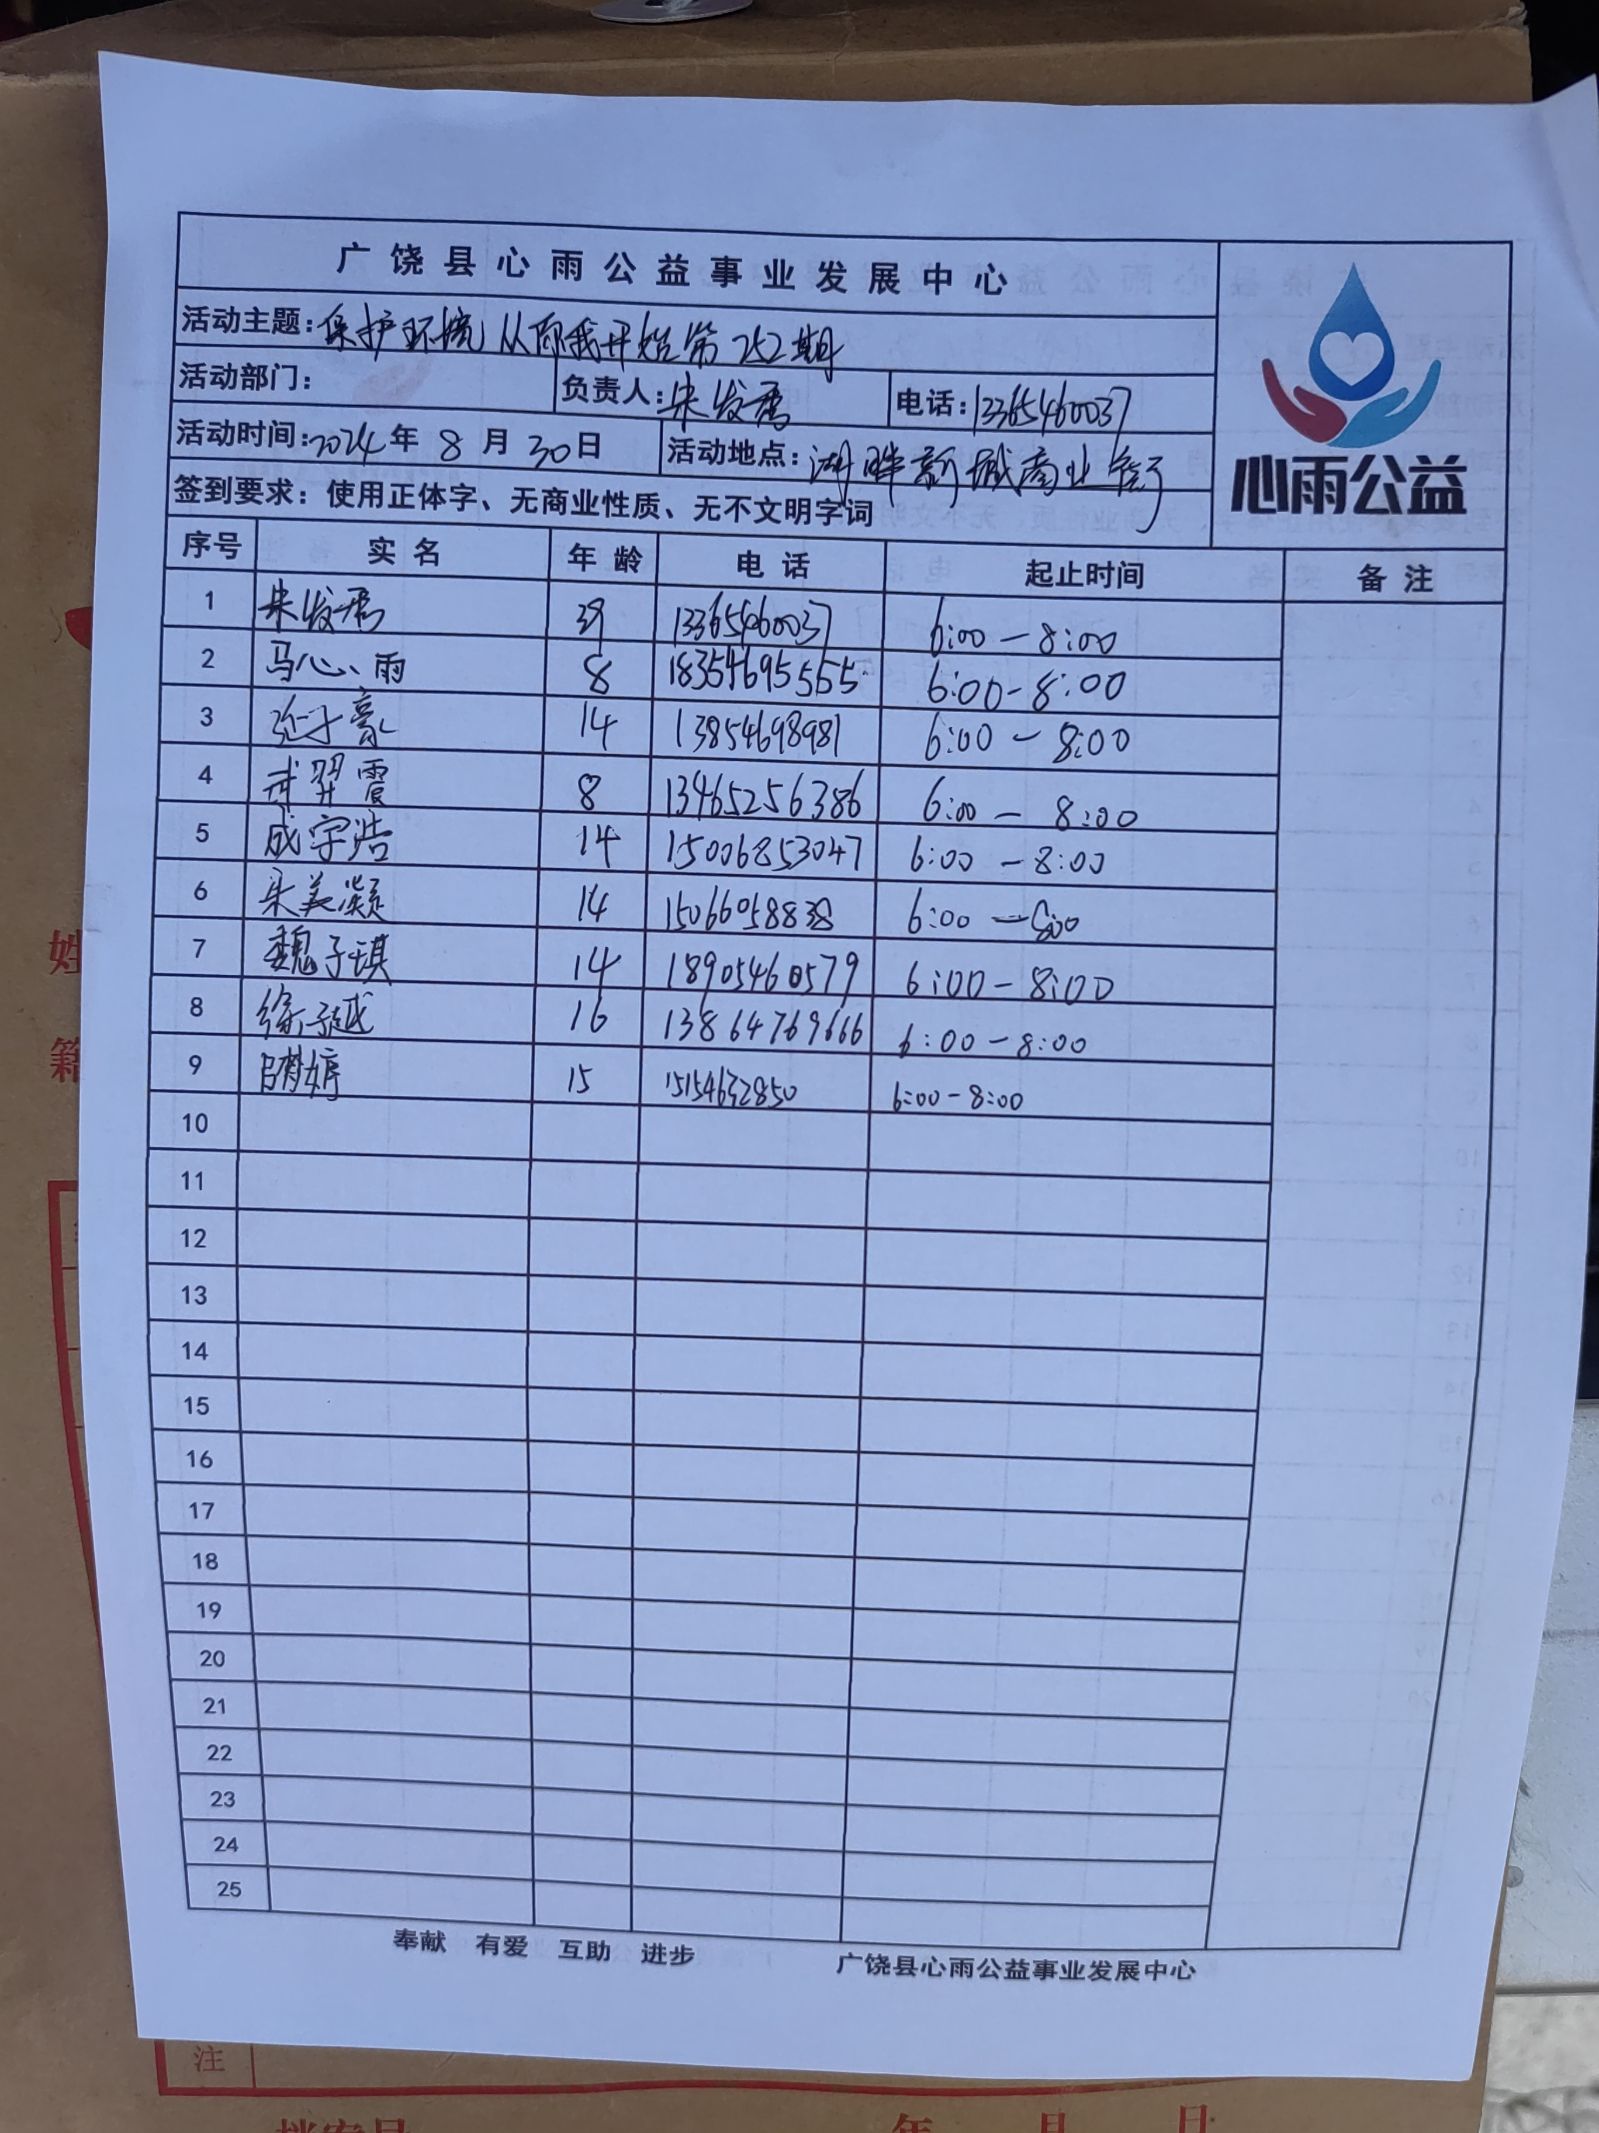 广饶县心雨公益事业发展中心
活动主题:保护环境从你我开始第252期
活动部门: 负责人:朱发展 电话:13365460037
活动时间:2024年8月30日 活动地点:湖畔新城商业街
签到要求:使用正体字、无商业性质、无不文明字词
心雨公益
序号 实名 年龄 电话 起止时间 备注
1 朱发 39 13365460037 6:00-8:00
2 马心雨 8 18354695555 6:00-8:00
3 子豪 14 13854698981 6:00-8:00
4 武羿霞 8 13465256386 6:00-8:00
5 成宇浩 14 15006853047 6:00-8:00
6 朱美凝 14 15066058838 6:00-8:00
7 魏子琪 14 18905460579 6:00-8:00
8 徐子越 16 13864769666 6:00-8:00
9 婷 15 15154632850 6:00-8:00
10
11
12
13
14
15
16
17
18
19
20
21
22
23
24
25
奉献 有爱 互助 进步 广饶县心雨公益事业发展中心
姓
籍
注
年 月 日